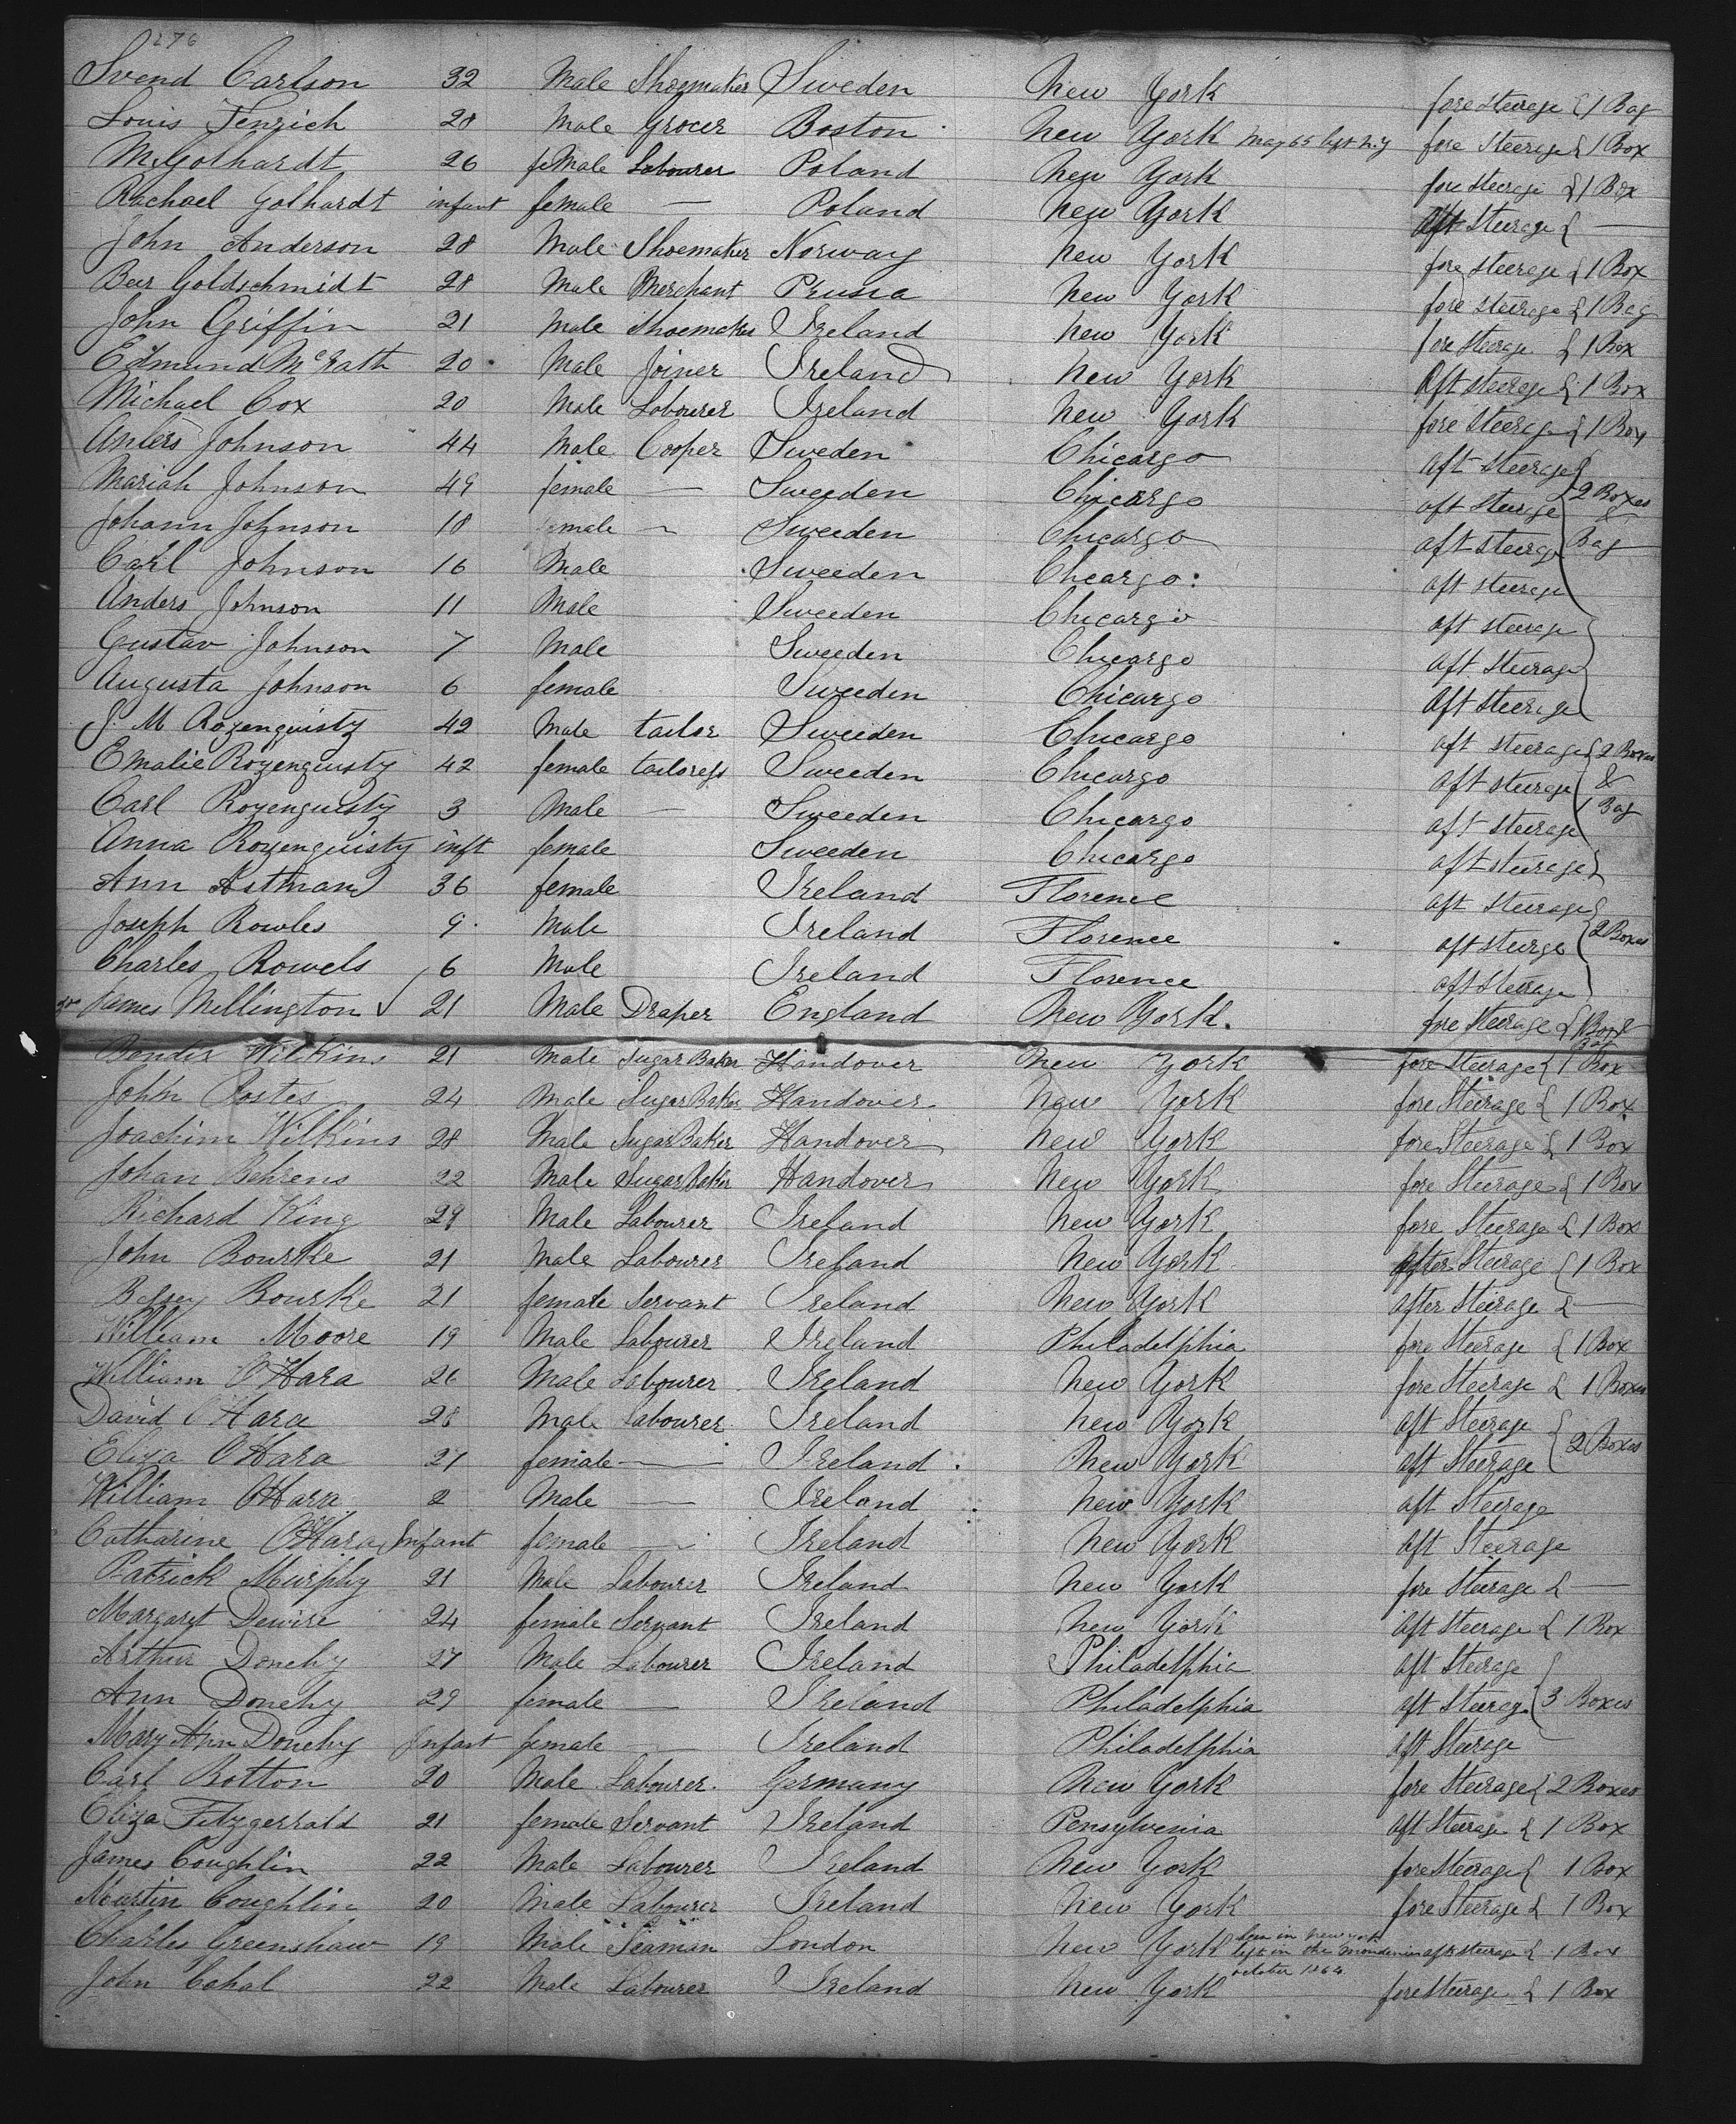 276
Svend Carlson 32 Male Shoemaker Sweden New York fore steerage { 1 Bag
Louis Jenrich 28 Male Grocer Boston New York May 65 left N.Y fore Steerage { 1 Box
M Golhardt 26 feMale Labourer Poland New York fore steerage { 1 Box
Rachael Golhardt infant female — Poland New York aft Steerage { —
John Anderson 28 Male Shoemaker Norway New York fore steerage { 1 Box
Ber Goldschmidt 28 Male Merchant Prusia New York fore steerage { 1 Bag
John Griffin 21 Male Shoemaker Ireland New York fore Steerage { 1 Box
Edmund McGrath 20 Male Joiner Ireland New York Aft steerage { 1 Box
Michael Cox 20 Male Labourer Ireland New York fore steerage { 1 Box
Anders Johnson 44 Male Cooper Sweden Chicargo aft steerage
Mariah Johnson 49 female — Sweeden Chicargo aft Steerage 2 Boxes
Johann Johnson 18 female — Sweeden Chicargo aft steerage & Bag
Carl Johnson 16 Male Sweeden Chicargo aft steerage
Anders Johnson 11 Male Sweeden Chicargo aft steerage
Gustav Johnson 7 Male Sweeden Chicargo aft Steerage
Augusta Johnson 6 female Sweeden Chicargo Aft Steerage
J. M Rozenquisty 42 Male tailor Sweeden Chicargo aft steerage { 2 Boxes
Emalie Rozenquisty 42 female tailoress Sweeden Chicargo aft steerage &
Carl Rozenquisty 3 Male — Sweeden Chicargo aft steerage 1 Bag
Anna Rozenquisty inft female Sweeden Chicargo aft steerage
Ann Astman 36 female Ireland Florence aft Steerage
Joseph Rowles 9 Male Ireland Florence aft steerge 2 Boxes
Charles Rowels 6 Male Ireland Florence aft Steerage
James Millington 21 Male Draper England New York. fore Steerage { 1 Box &
Bendix Wilkins 21 Male Sugar Baker Handover New York fore Steerage { 1 Box
John Postes 24 Male Sugar Baker Handover New York fore Steerage { 1 Box
Joachim Wilkins 28 Male Sugar Baker Handover New York fore Steerage { 1 Box
Johan Behrens 22 Male Sugar Baker Handover New York fore Steerage { 1 Box
Richard King 29 Male Labourer Ireland New York fore Steerage { 1 Box
John Bourke 21 Male Labourer Ireland New York after Steerage { 1 Box
Betsey Bourke 21 female Servant Ireland New York after Steerage { —
William Moore 19 Male Labourer Ireland Philadelphia fore Steerage { 1 Box
William O'Hara 26 Male Labourer Ireland New York fore Steerage { 1 Boxes
David O'Hara 28 Male Labourer Ireland New York aft Steerage
Eliza O'Hara 27 female — Ireland New York aft Steerage { 2 Boxes
William O'Hara 2 Male — Ireland New York aft Steerage
Catharine O'Hara Infant female — Ireland New York aft Steerage
Patrick Murphy 21 Male Labourer Ireland New York fore Steerage { —
Margaret Dewire 24 female Servant Ireland New York aft Steerage { 1 Box
Arthur Donehy 27 Male Labourer Ireland Philadelphia aft Steerage
Ann Donehy 29 female — Ireland Philadelphia aft Steerage { 3 Boxes
Mary Ann Donehy Infant female — Ireland Philadelphia aft Steerage
Carl Botton 20 Male Labourer Germany New York fore Steerage { 2 Boxes
Eliza Fitzgerrald 21 female Servant Ireland Pensylvenia aft Steerage { 1 Box
James Coughlin 22 Male Labourer Ireland New York fore Steerage { 1 Box
Martin Coughlin 20 Male Labourer Ireland New York fore Steerage { 1 Box
Charles Greenshaw 19 Male Seaman London New York been in New york left in the aft steerage { 1 Box
october 1864
John Cahal 22 Male Labourer Ireland New York fore Steerage { 1 Box